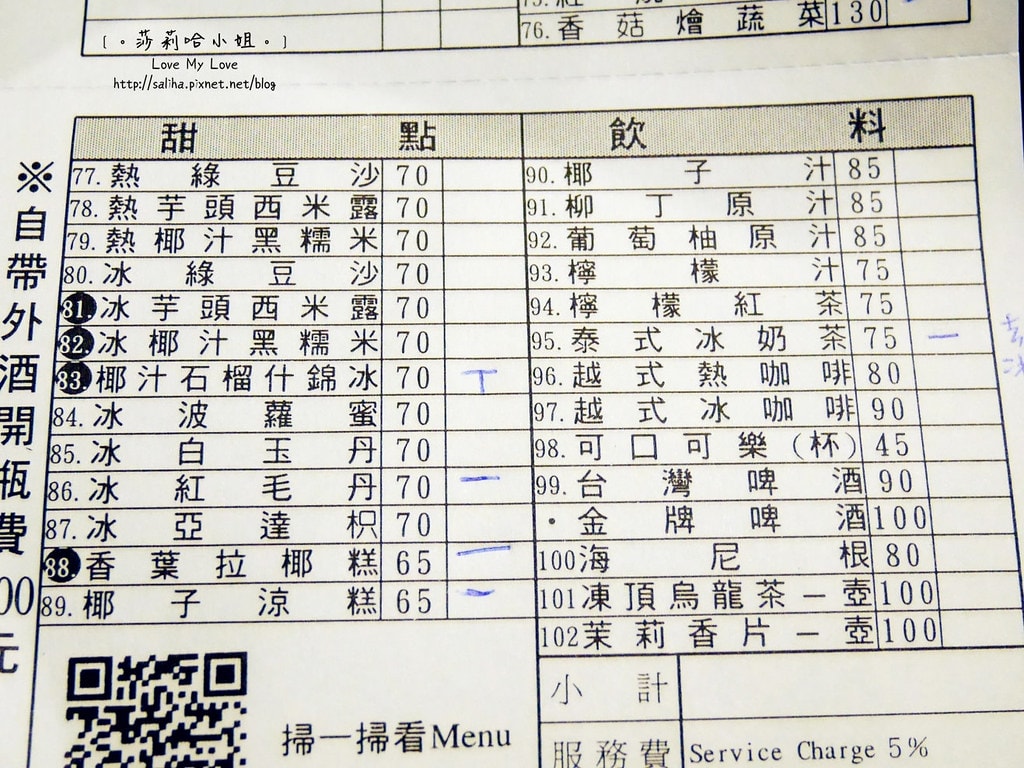 76. 香菇燴蔬菜 130
{。莎莉哈小姐。}
Love My Love
http://saliha.pixnet.net/blog
※自帶外酒開瓶費00元
甜點
77. 熱綠豆沙 70
78. 熱芋頭西米露 70
79. 熱椰汁黑糯米 70
80. 冰綠豆沙 70
81. 冰芋頭西米露 70
82. 冰椰汁黑糯米 70
83. 椰汁石榴什錦冰 70 T
84. 冰波蘿蜜 70
85. 冰白玉丹 70
86. 冰紅毛丹 70 一
87. 冰亞達枳 70
88. 香葉拉椰糕 65 一
89. 椰子涼糕 65 一
飲料
90. 椰子汁 85
91. 柳丁原汁 85
92. 葡萄柚原汁 85
93. 檸檬汁 75
94. 檸檬紅茶 75
95. 泰式冰奶茶 75 一
96. 越式熱咖啡 80
97. 越式冰咖啡 90
98. 可口可樂(杯) 45
99. 台灣啤酒 90
·金牌啤酒 100
100 海尼根 80
101 凍頂烏龍茶一壺 100
102 茉莉香片一壺 100
小計
服務費 Service Charge 5%
掃一掃看Menu